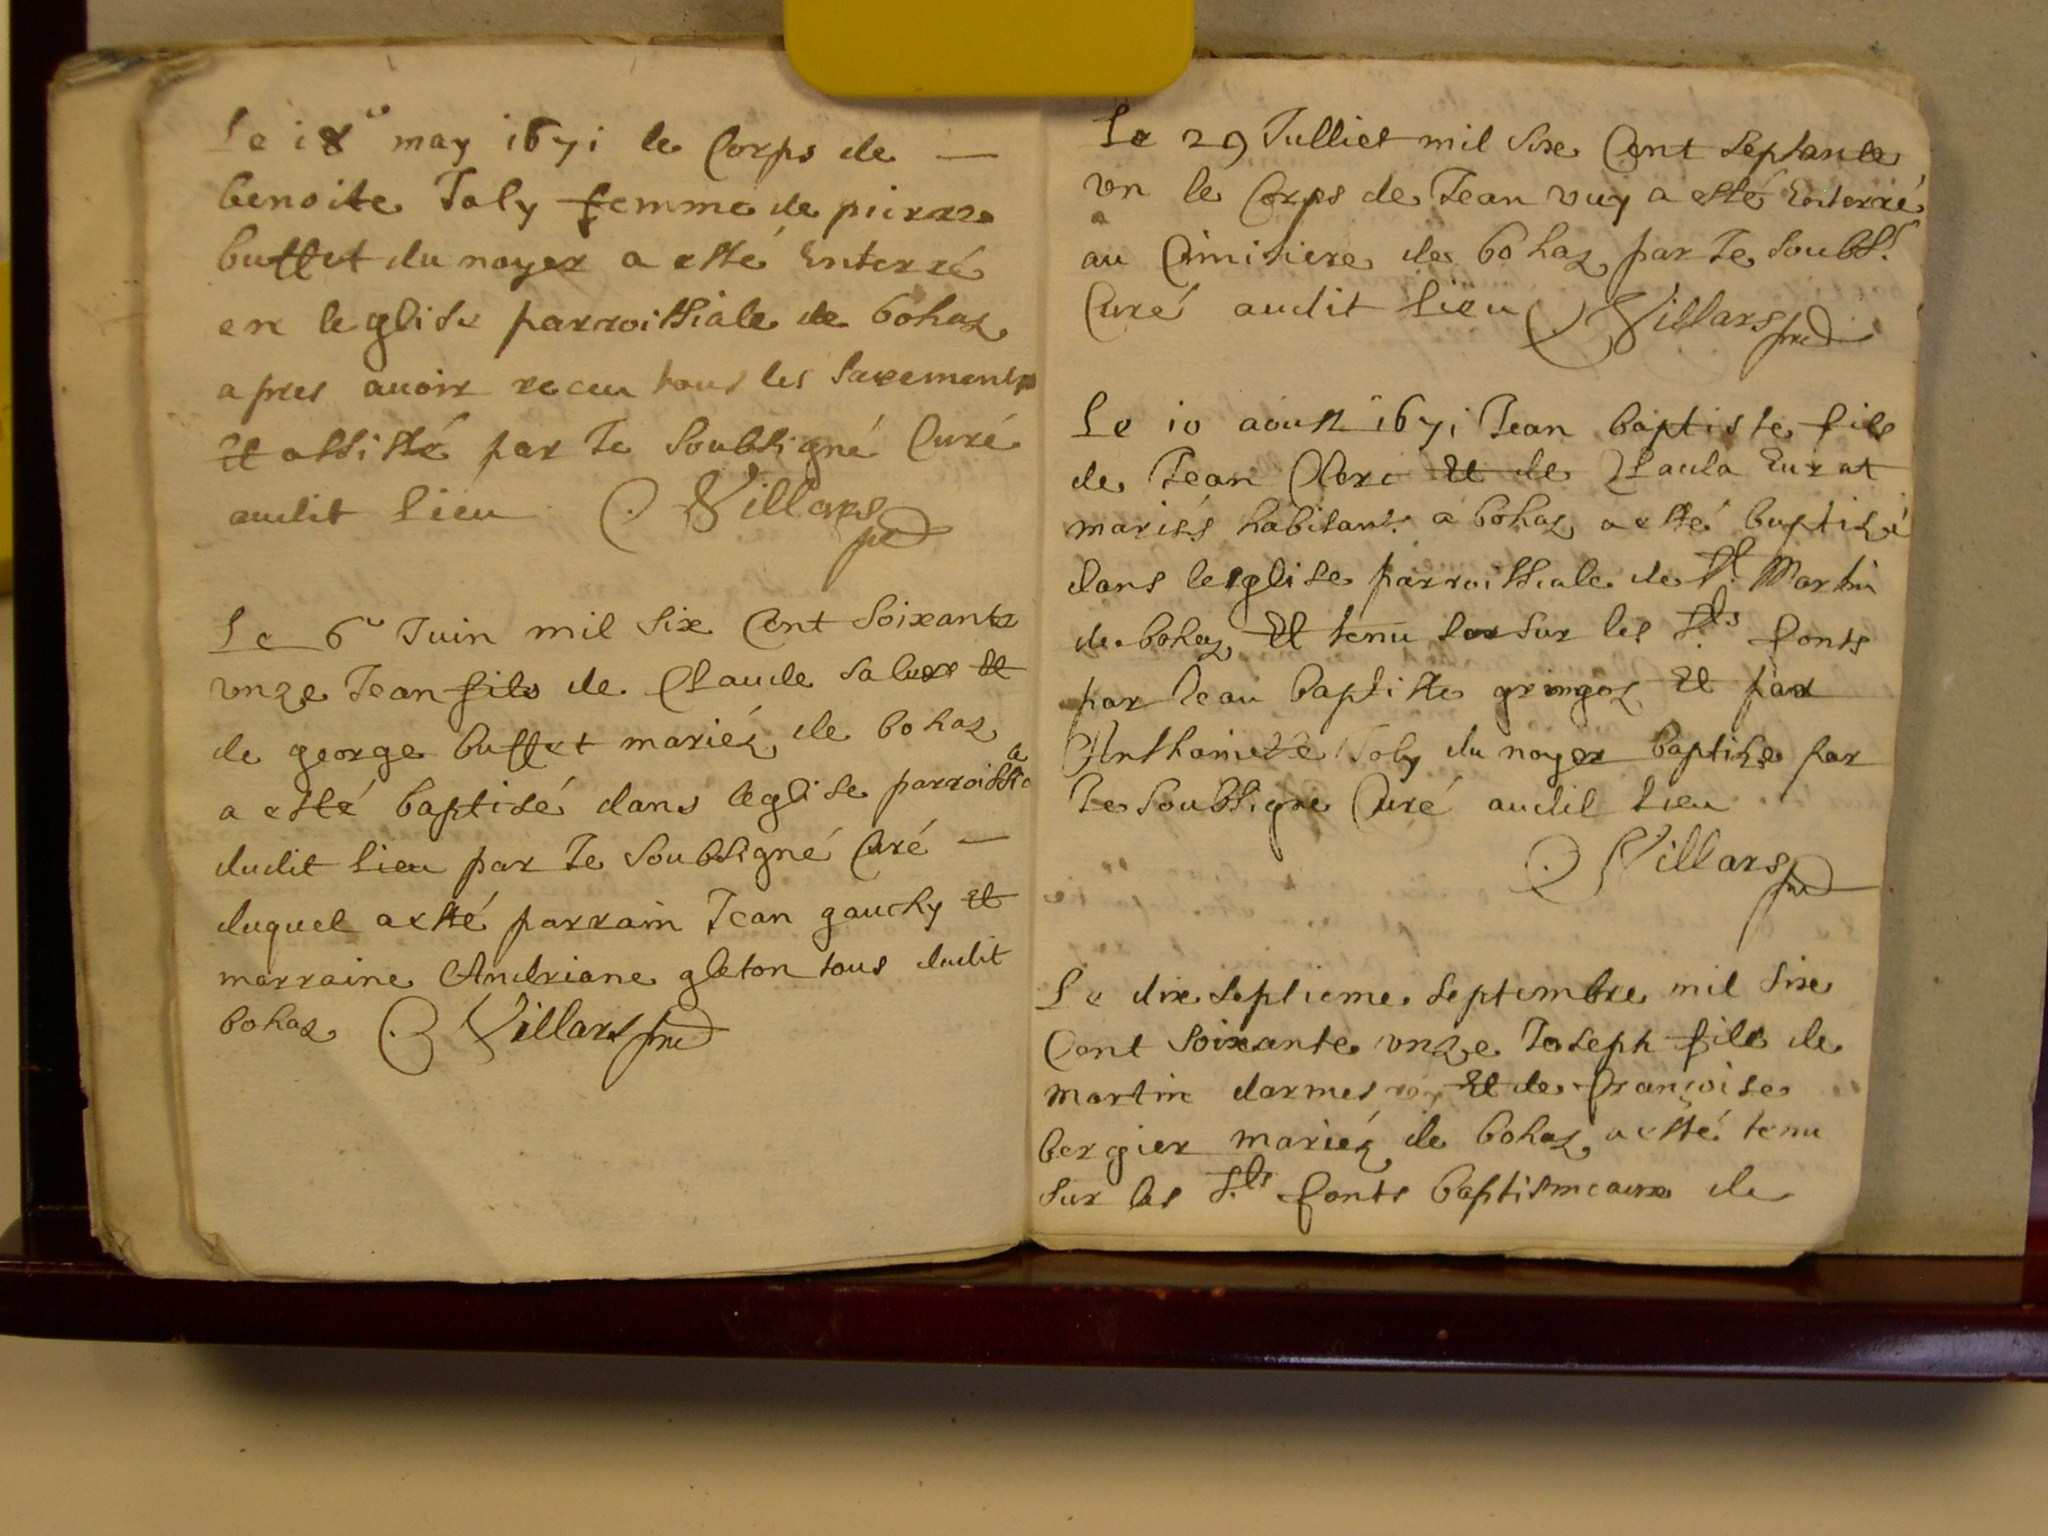 Le 18e may 1671 le Corps de —
benoite Joly femme de pierre
buffet du noyer a esté Enterré
en leglise parroissiale de bohas
apres auoir receu tous les Sacrements
Et assisté par Je Soubsigné Curé
audit Lieu Villars
Le 6e Juin mil Six Cent Soixante
vnze Jean fils de Claude Et
de george buffet mariez de bohas
a esté baptisé dans leglise parroissia
dudit Lieu par Je Soubsigné Curé —
duquel a esté parrain Jean gauchy Et
marraine Andriane gleton tous dudit
bohas Villars
Le 29 Julliet mil Six Cent Septante
vn le Corps de Jean vuy a esté Enterré
au Cimitiere de bohas par Je Soubst.
Curé audit Lieu Villars
Le 10 aoust 1671 Jean baptiste fils
de Jean Clerc Et de Claula
mariés habitants a bohas a esté baptisé
dans lesglise parroissiale de St. Martin
de bohas Et tenu sur les Sts fonts
par Jean baptiste gringoz Et par
Anthoinette Joly du noyer baptise par
Je Soubsigne Curé audit Lieu
Villars
Le dix Septieme Septembre mil Six
Cent Soixante vnze Joseph fils de
martin Et de françoise
bergier mariez de bohas a esté tenu
sur les Sts fonts baptismeaux de